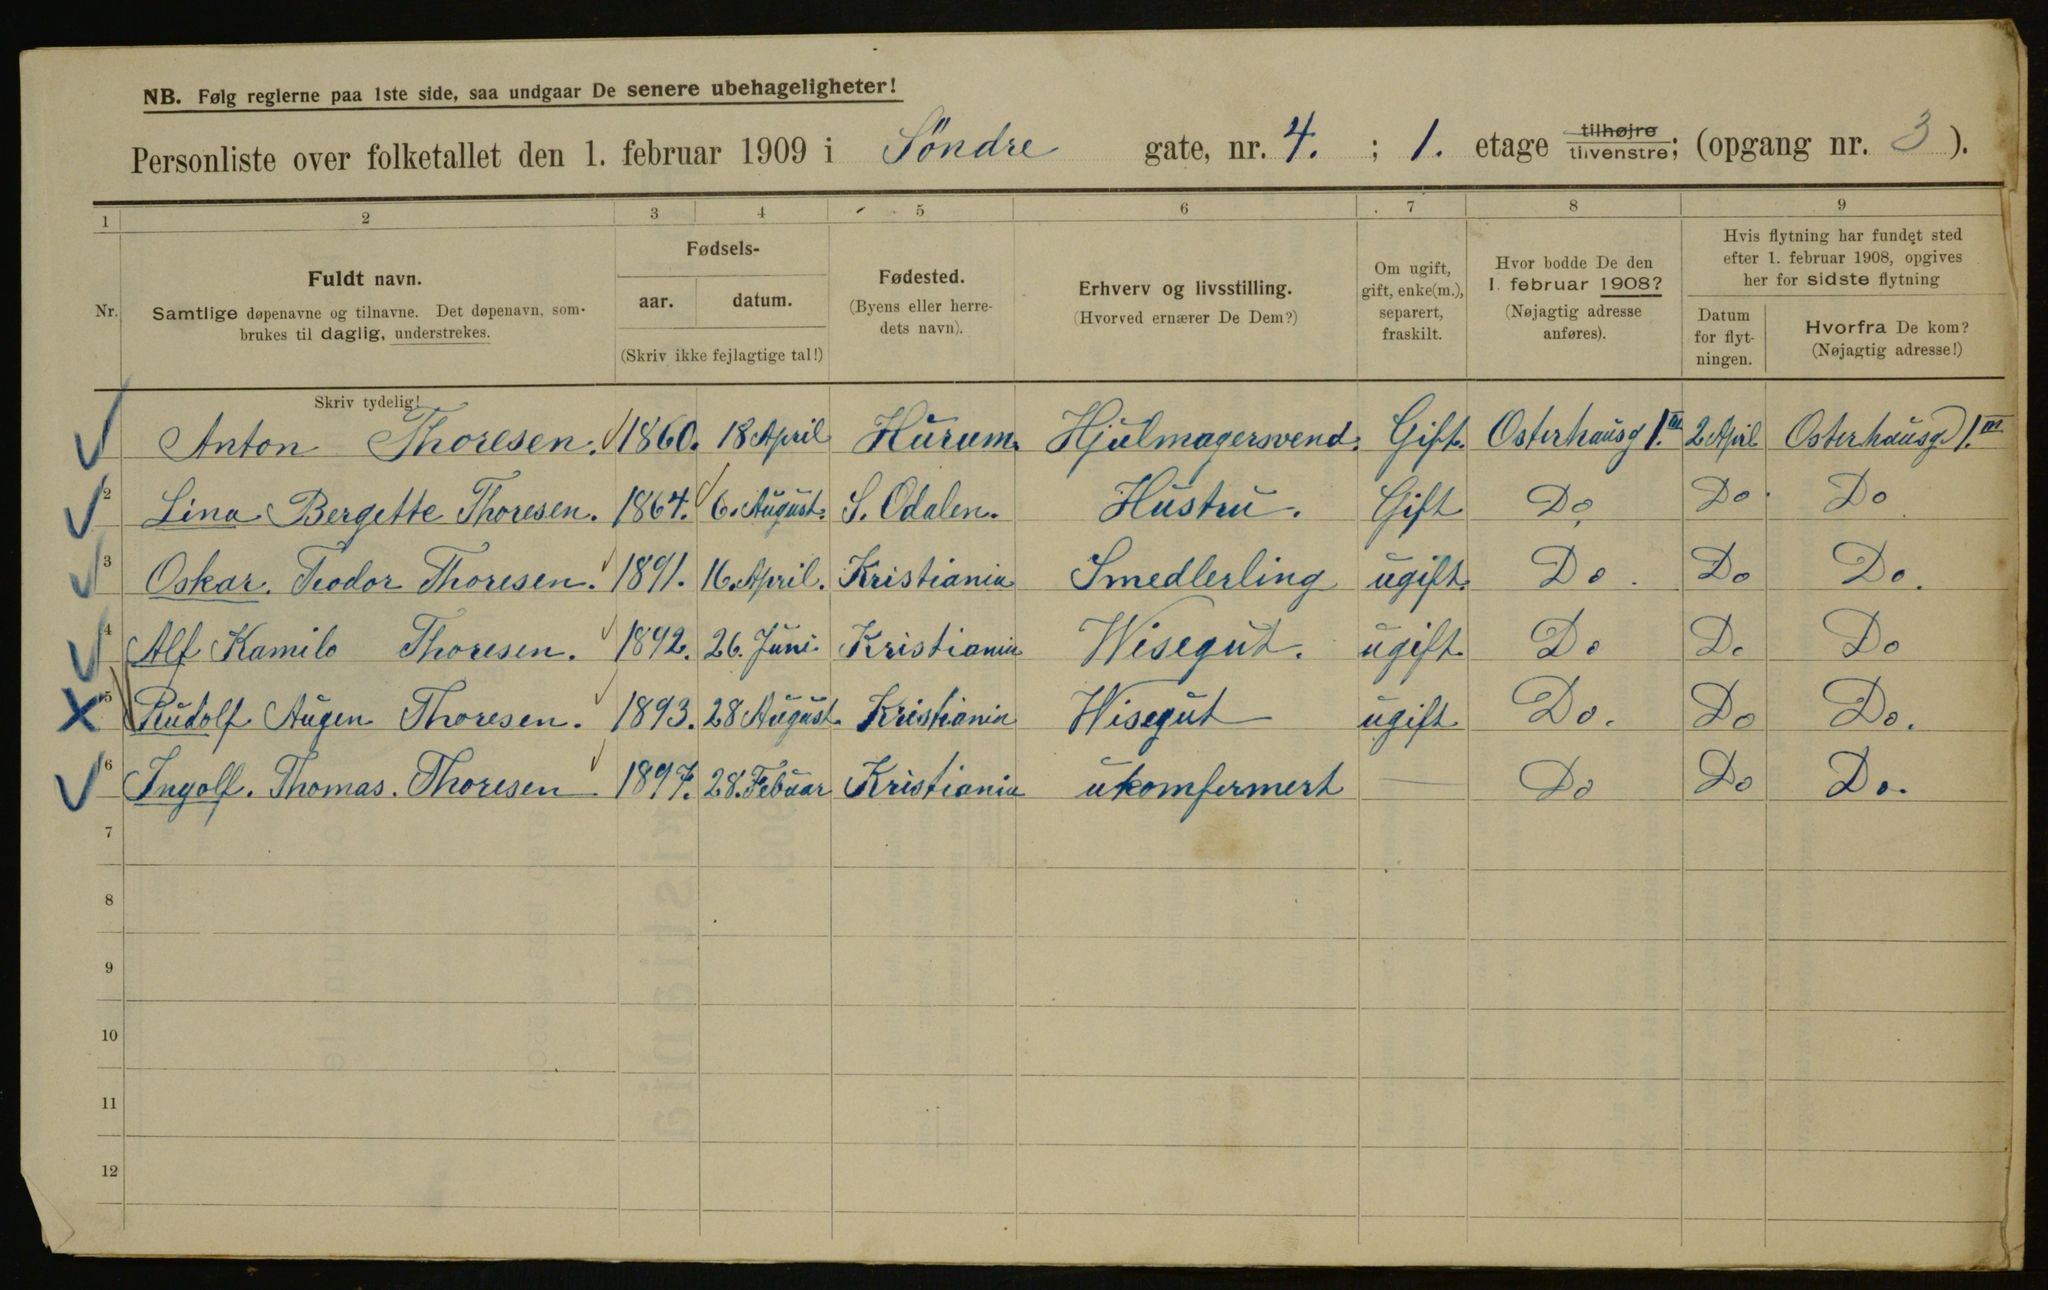 NB. Følg reglerne paa 1ste side, saa undgaar De senere ubehageligheter!
Personliste over folketallet den 1. februar 1909 i Söndre gate, nr. 4. ; 1. etage tilhøjre tilvenstre; (opgang nr. 3 ).
1 2 3 4 5 6 7 8 9
Nr.
Fuldt navn.
Samtlige døpenavne og tilnavne. Det døpenavn, som-
brukes til daglig, understrekes.
Fødsels-
aar. datum.
(Skriv ikke fejlagtige tal!)
Fødested.
(Byens eller herre-
dets navn).
Erhverv og livsstilling.
(Hvorved ernærer De Dem?)
Om ugift,
gift, enke(m.),
separert,
fraskilt.
Hvor bodde De den
1. februar 1908?
(Nøjagtig adresse
anføres).
Hvis flytning har fundet sted
efter 1. februar 1908, opgives
her for sidste flytning
Datum
for flyt-
ningen.
Hvorfra De kom?
(Nøjagtig adresse!)
Skriv tydelig!
Anton Thoresen. 1860. 18 April Hurum. Hjulmagersvend. Gift. Osterhausg 1.III 2 April Osterhausg 1.III
2 Lina Bergette Thoresen. 1864. 6. August. S. Odalen. Hustru. Gift Do Do Do
3 Oskar. Teodor Thoresen. 1891. 16. April. Kristiania Smedlerling ugift. Do. Do Do.
4 Alf Kamilo Thoresen. 1892. 26. Juni Kristiania Wisegut. ugift. Do Do Do
5 Rudolf Augen Thoresen. 1893. 28 August. Kristiania Wisegut ugift Do. Do Do.
6 Ingolf. Thomas. Thoresen 1897. 28. Febuar Kristiania ukomfermert — Do Do Do.
7
8
9
10
11
12